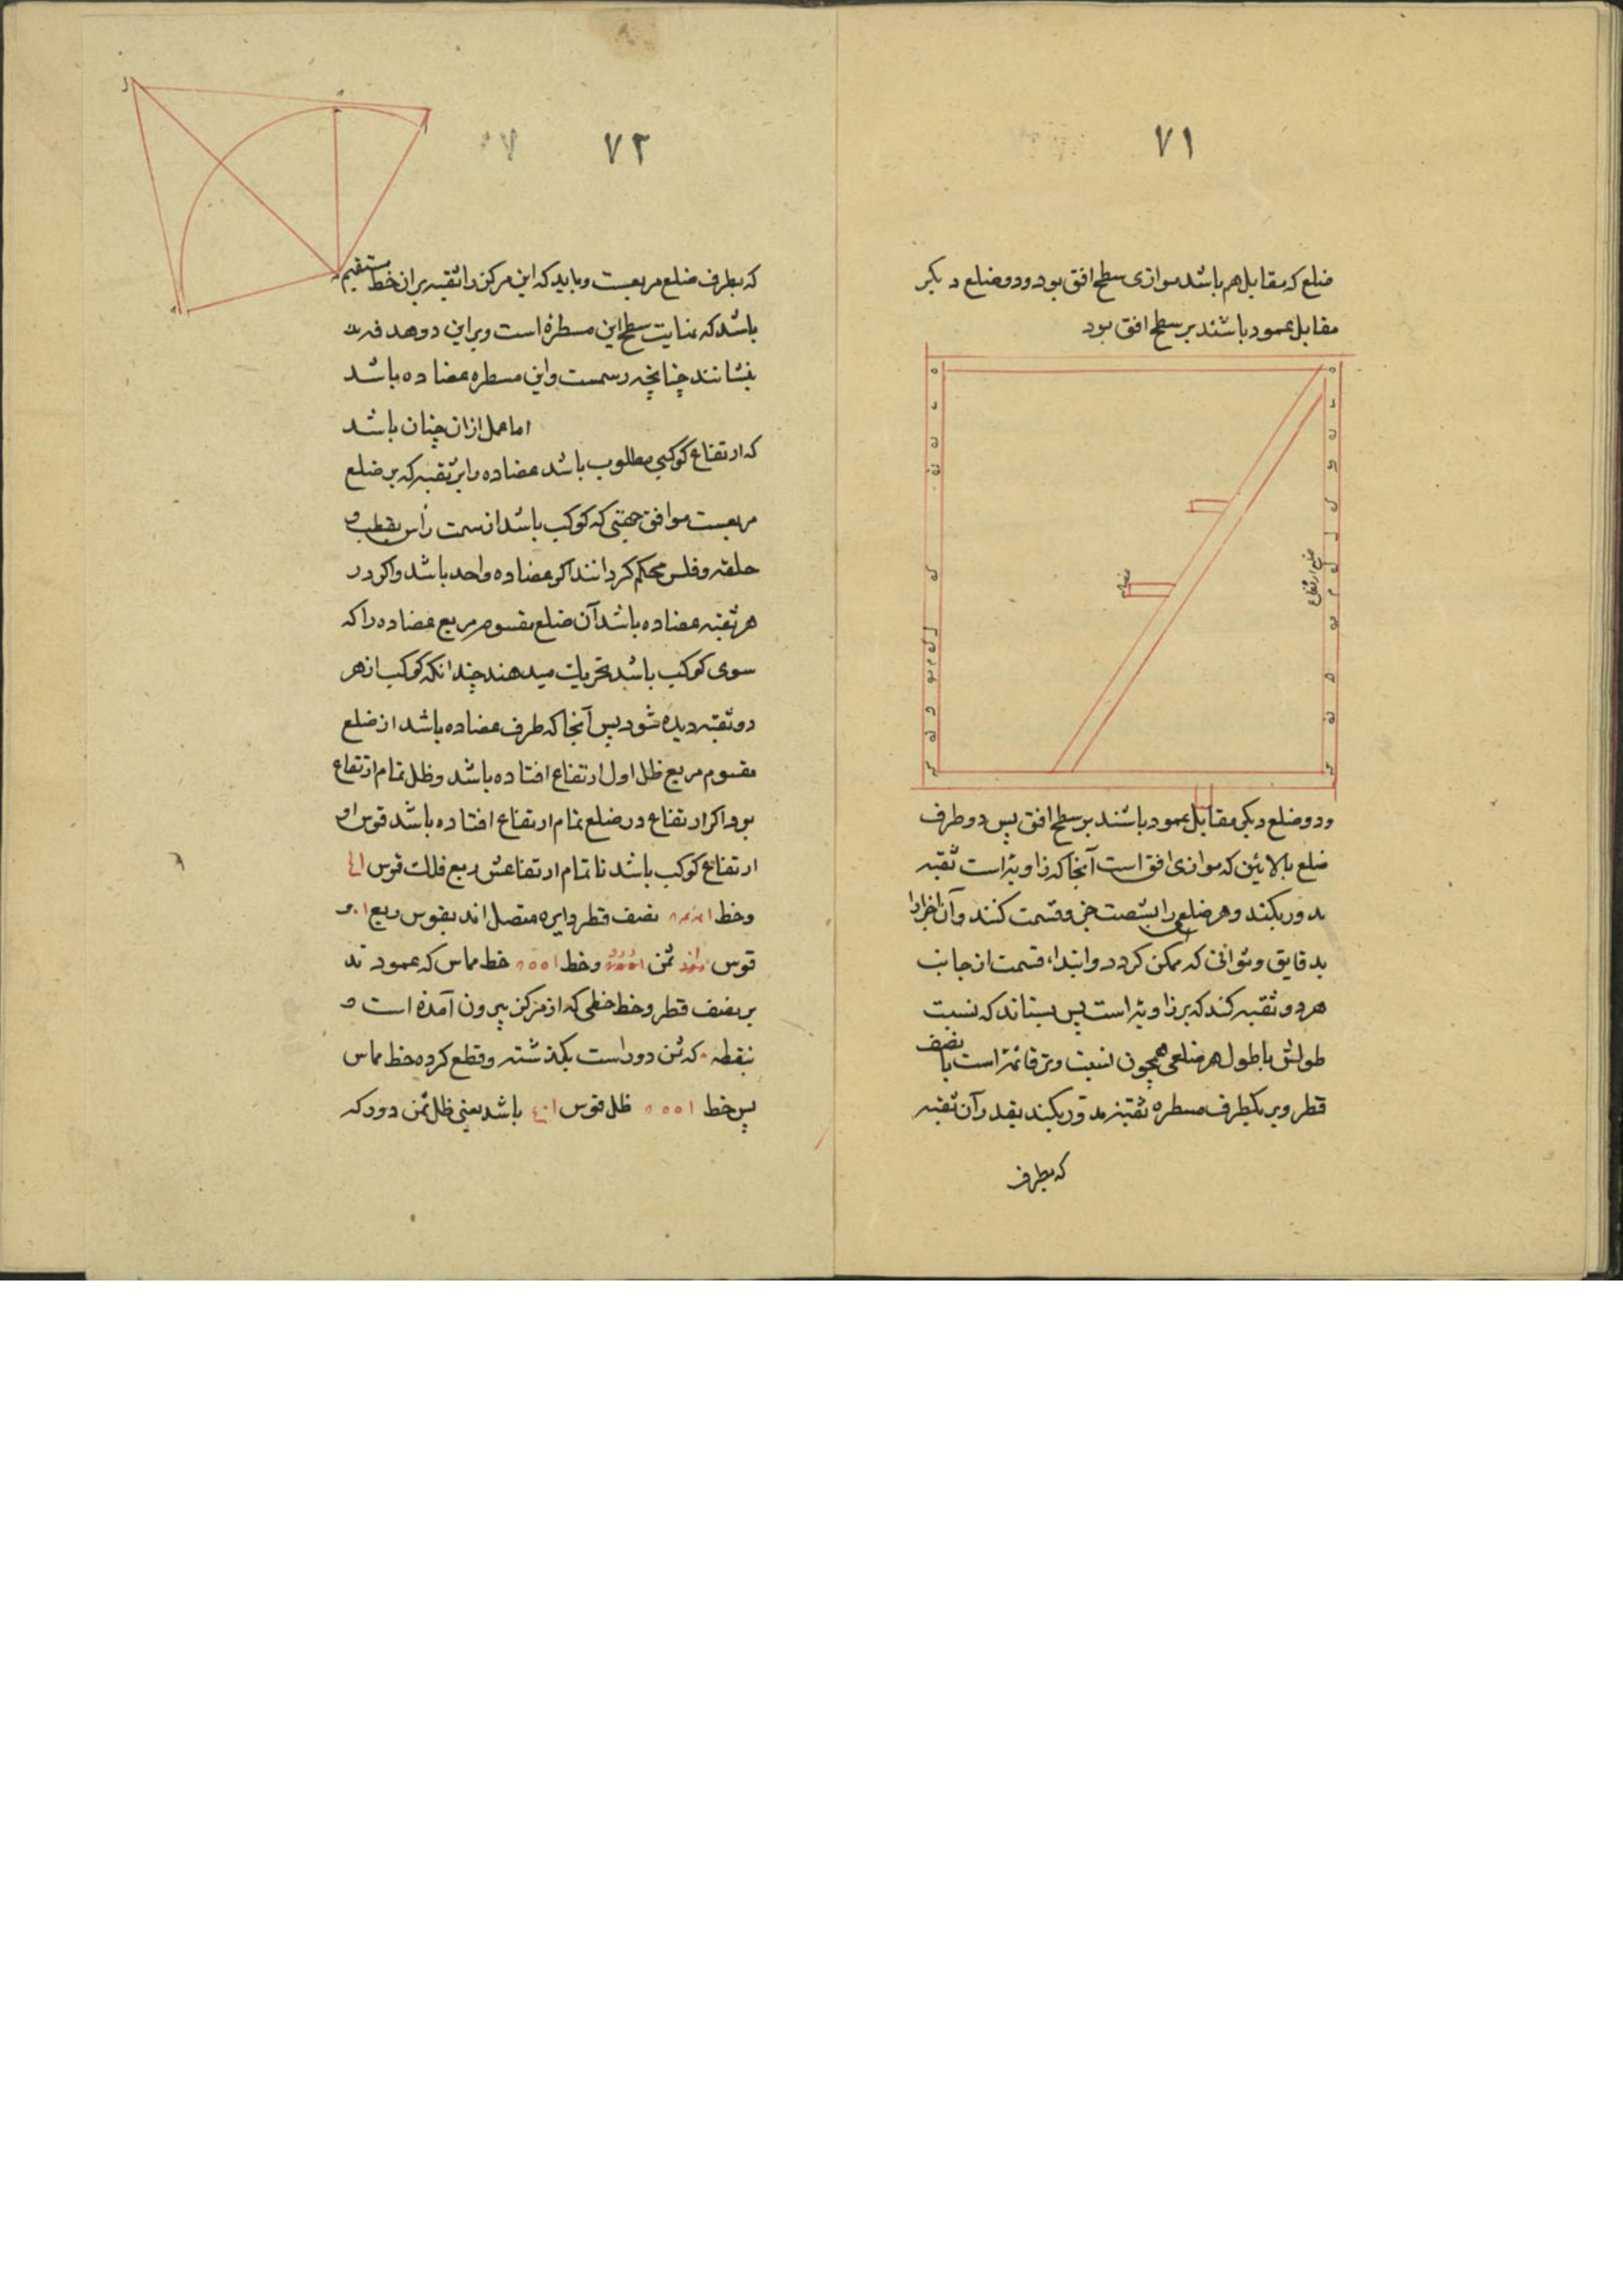 ٧١
ضلع که مقابل هم باشد موازی سطح افق بود و دو ضلع دیکر
مقابل عمود باشند بر سطح افق بود
ضلع ارتفاع
و دو ضلع دیکر مقابل عمود باشند بر سطح افق پس دو طرف
ضلع بالائین که موازی افق است آنجا که زاویه است ثقبه
مدور بکنند و هر ضلعی را بشصت جزو قسمت کنند و آن اجزا را
بدقایق و ثوانی که ممکن کردد و ابتداء قسمت از جانب
هر دو ثقبه کند که بر زاویه است پس بستاند که نسبت
طولش با طول هر ضلعی همچون نسبت وتر قائمه است با نصف
قطر و بر یکطرف مسطره ثقبه مدور بکنند بقدر آن ثقبه
که بطرف
٧٢
که بطرف ضلع مربعست و باید که این مرکز را ثقبه بران خط مستقیم
باشد که بنهایت سطح این مسطره است و بر این دو هدفه
بنشانند چنانچه رسمست و این مسطره عضاده باشد
اما عمل ازان چنان باشد
که ارتفاع کوکبی مطلوب باشد عضاده را بر ثقبه که بر ضلع
مربعست موافق جهتی که کوکب باشد از سمت رأس بقطب و
حلقه و فلس محکم کردانند اکر عضاده واحد باشد و اکر در
هر ثقبه عضاده باشد آن ضلع مقسوم مربع عضاده را که
سوی کوکب باشد تحریک میدهند چندانکه کوکب از هر
دو ثقبه دیده شود پس آنجا که طرف عضاده باشد از ضلع
مقسوم مربع ظل اول ارتفاع افتاده باشد و ظل تمام ارتفاع
بود اکر ارتفاع در ضلع تمام ارتفاع افتاده باشد قوس او
ارتفاع کوکب باشد تا تمام ارتفاعش ربع فلک قوس
و خط نصف قطر دایره متصل اند بقوس ربع
قوس ثمن و خط خط مماس که عمودند
بر نصف قطر و خط خطی که از مرکز بیرون آمده است و
بنقطه که ثمن دور است بکذشته و قطع کرده خط مماس
پس خط ظل قوس باشد یعنی ظل ثمن دور که